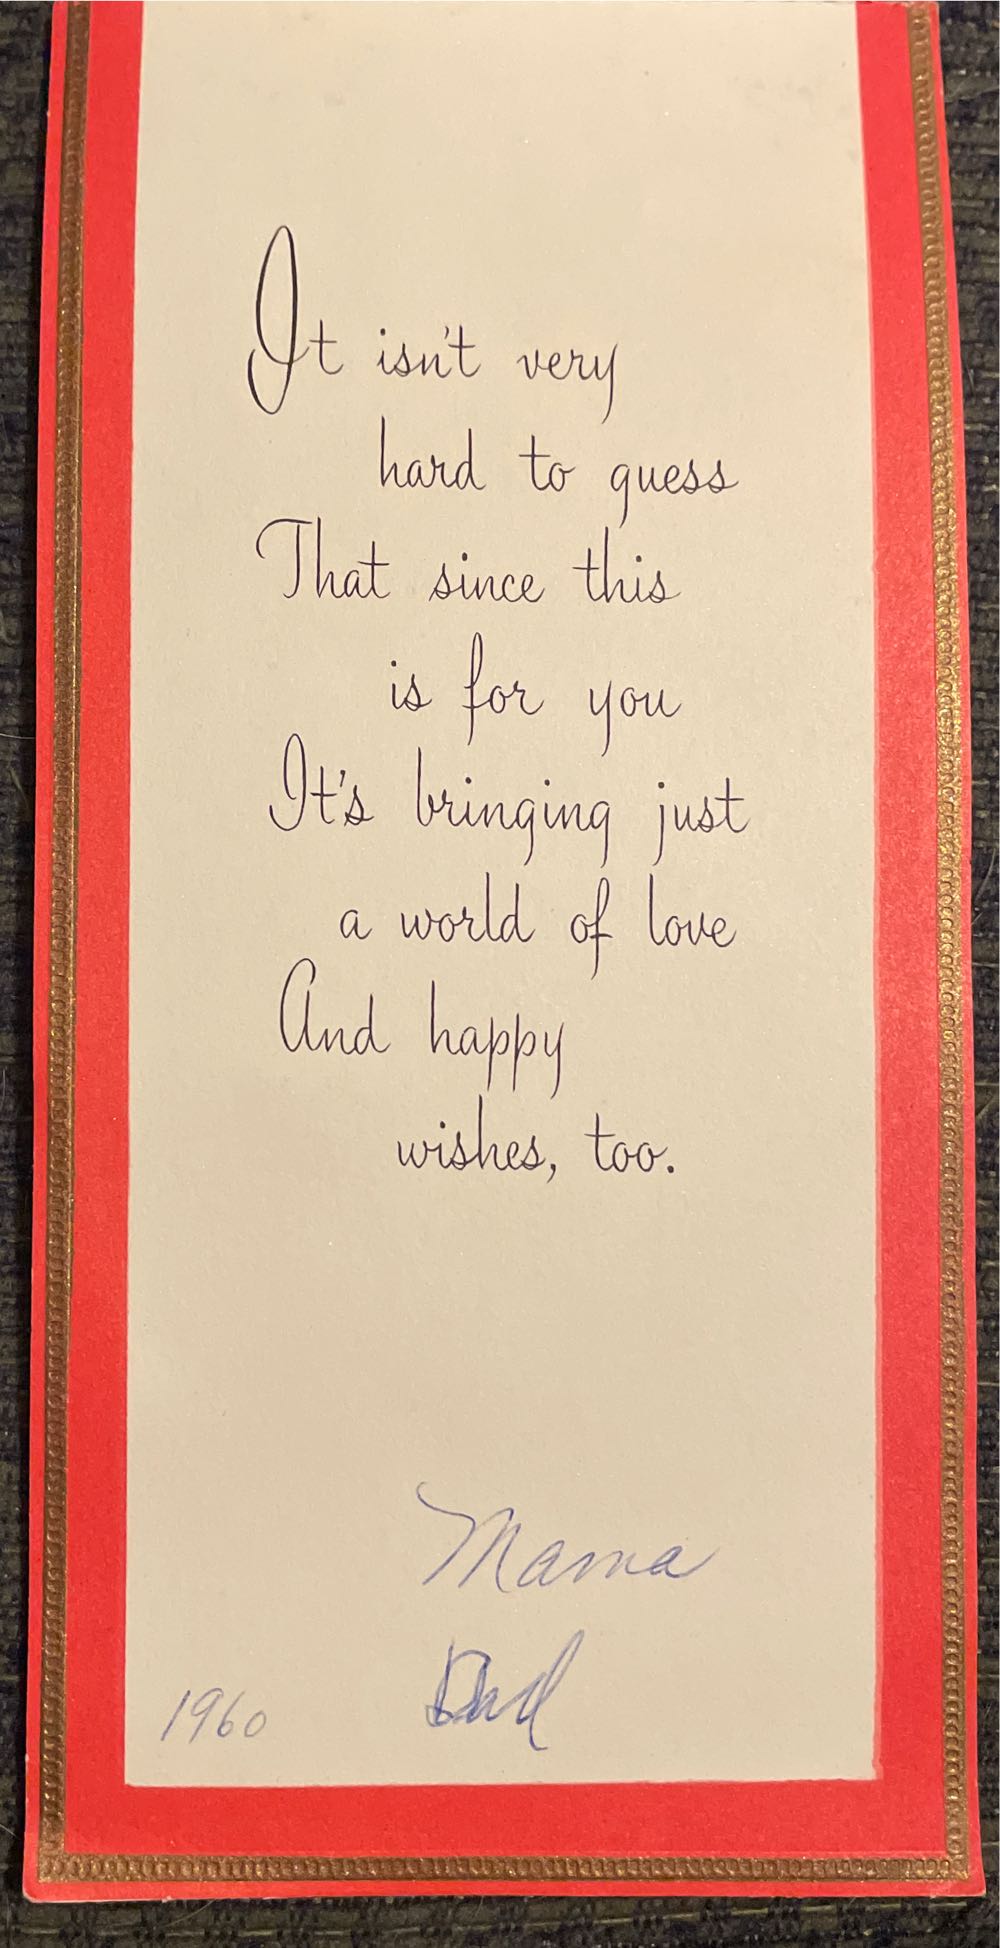 It isn't very
hard to guess
That since this
is for you
It's bringing just
a world of love
And happy
wishes, too.
Mama
Dad
1960